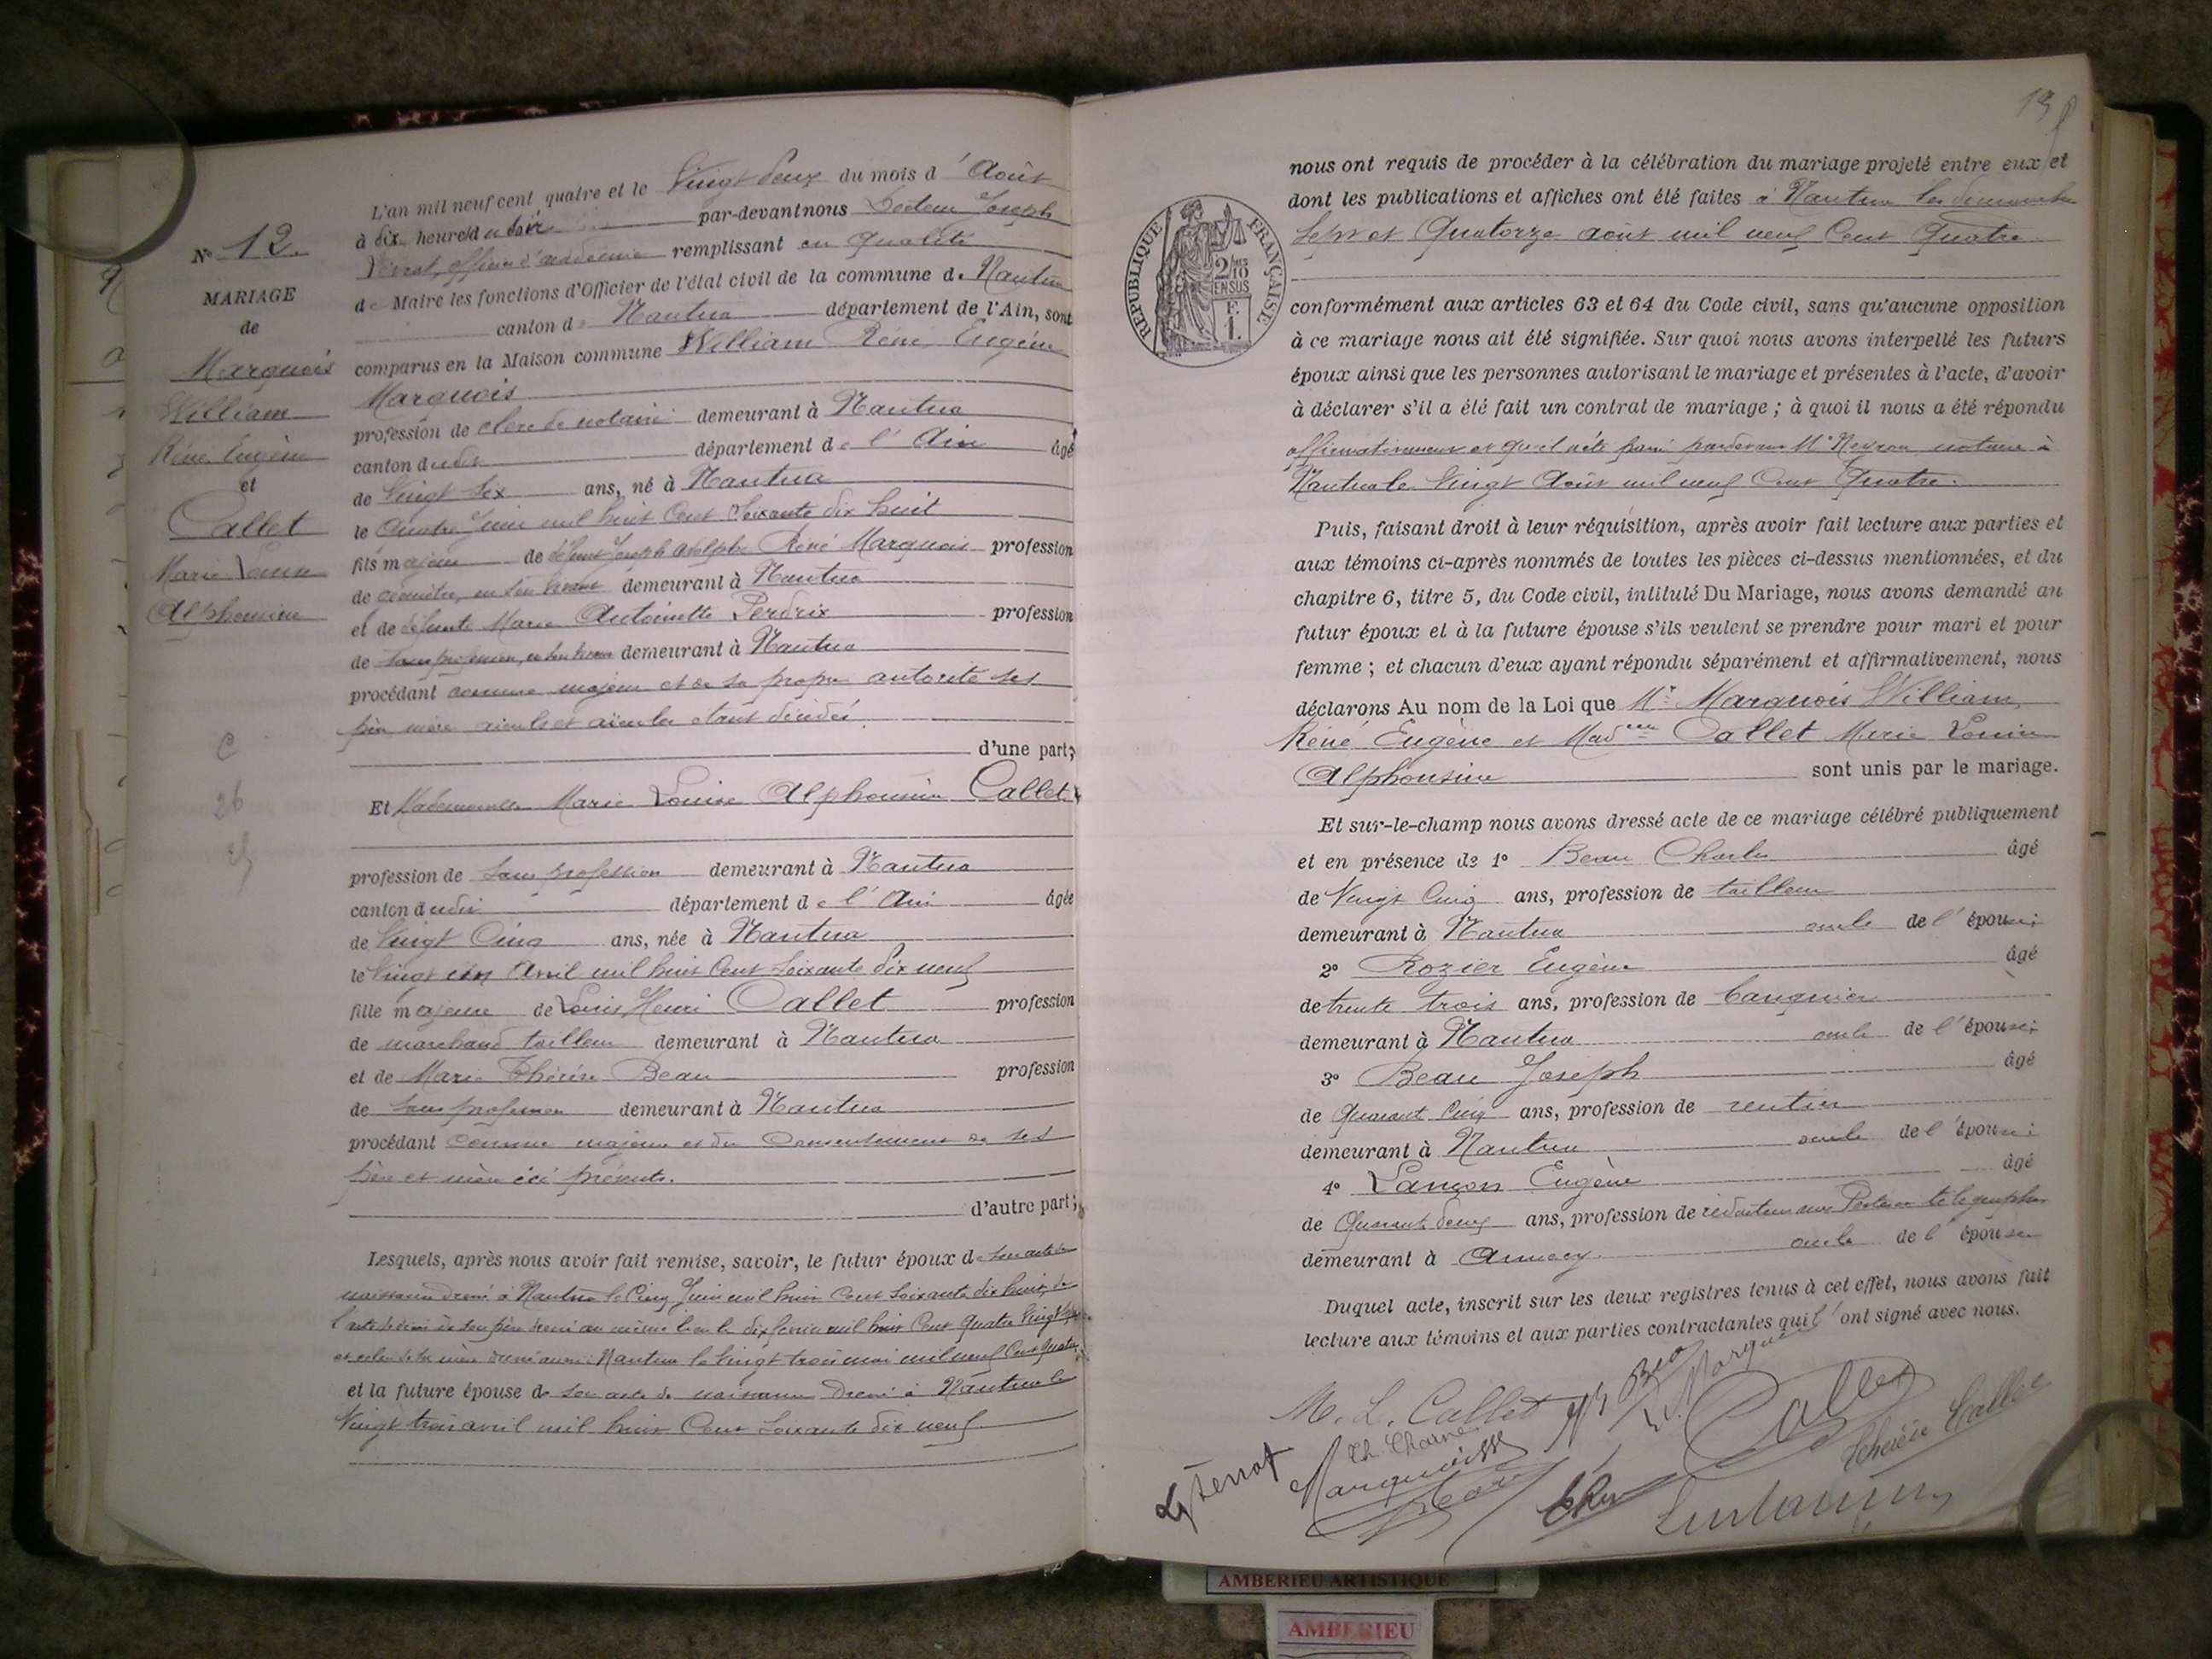 N° 12.
MARIAGE
de
Marquois
William
Réné Eugène
et
Callet
Marie Louise
Alphonsine
L'an mil neuf cent quatre et le Vingt deux du mois d'Août
à dix heures du soir par-devant nous Docteur Joseph
officier d'académie remplissant en qualité
de Maire les fonctions d'Officier de l'état civil de la commune de Nantua
canton de Nantua département de l'Ain, sont
comparus en la Maison commune William Réné Eugène
Marquois
profession de clerc de notaire demeurant à Nantua
canton dudit département de l'Ain âgé
de Vingt six ans, né à Nantua
le quatre Juin mil huit Cent Soixante dix huit
fils majeur de défunt Joseph Adolphe Réné Marquois profession
de en son vivant demeurant à Nantua
et de défunte Marie Antoinette Perdrix profession
de sans profession, demeurant à Nantua
procédant comme majeur et de sa propre autorité ses
père mère aieuls et aïeules étant décédés.
d'une part;
Et Mademoiselle Marie Louise Alphonsine Callet
profession de sans profession demeurant à Nantua
canton dudit département de l'Ain âgée
de Vingt Cinq ans, née à Nantua
le Vingt Avril mil huit Cent Soixante dix neuf
fille majeure de Louis Henri Callet profession
de marchand tailleur demeurant à Nantua
et de Marie Thérèse Beau profession
de sans profession demeurant à Nantua
procédant comme majeure et du Consentement de ses
père et mère ici présents.
d'autre part;
Lesquels, après nous avoir fait remise, savoir, le futur époux de son acte de
naissance dressé à Nantua le Cinq Juin mil huit Cent Soixante dix huit, de
l'acte de décès de son père dressé au même lieu le dix mil huit Cent Quatre Vingt
et celui de sa mère dressé aussi à Nantua le vingt trois mai mil neuf Cent quatre,
et la future épouse de son acte de naissance dressé à Nantua le
Vingt trois avril mil huit Cent Soixante dix neuf
nous ont requis de procéder à la célébration du mariage projeté entre eux et
dont les publications et affiches ont été faites à Nantua les dimanches
Sept et Quatorze août mil neuf Cent Quatre
RÉPUBLIQUE FRANÇAISE
2/10 EN SUS
F. 1.
conformément aux articles 63 et 64 du Code civil, sans qu'aucune opposition
à ce mariage nous ait été signifiée. Sur quoi nous avons interpellé les futurs
époux ainsi que les personnes autorisant le mariage et présentes à l'acte, d'avoir
à déclarer s'il a été fait un contrat de mariage; à quoi il nous a été répondu
affirmativement et qu'il a été passé pardevant Me Neyron notaire à
Nantua le Vingt Août mil neuf Cent Quatre.
Puis, faisant droit à leur réquisition, après avoir fait lecture aux parties et
aux témoins ci-après nommés de toutes les pièces ci-dessus mentionnées, et du
chapitre 6, titre 5, du Code civil, intitulé Du Mariage, nous avons demandé au
futur époux et à la future épouse s'ils veulent se prendre pour mari et pour
femme; et chacun d'eux ayant répondu séparément et affirmativement, nous
déclarons Au nom de la Loi que Mr Marquois William,
Réné Eugène et Madelle Callet Marie Louise
Alphonsine sont unis par le mariage.
Et sur-le-champ nous avons dressé acte de ce mariage célébré publiquement
et en présence de 1° Beau Charles âgé
de Vingt Cinq ans, profession de tailleur
demeurant à Nantua oncle de l'épouse;
2° Rozier Eugène âgé
de trente trois ans, profession de banquier
demeurant à Nantua oncle de l'épouse;
3° Beau Joseph âgé
de Quarante Cinq ans, profession de rentier
demeurant à Nantua oncle de l'épouse;
4° Lançon Eugène âgé
de Quarante deux ans, profession de rédacteur aux Postes et télégraphes
demeurant à Annecy oncle de l'épouse
Duquel acte, inscrit sur les deux registres tenus à cet effet, nous avons fait
lecture aux témoins et aux parties contractantes qui l'ont signé avec nous.
M. L. Callet
Callet
Thérèse Callet
AMBERIEU ARTISTIQUE
AMBERIEU